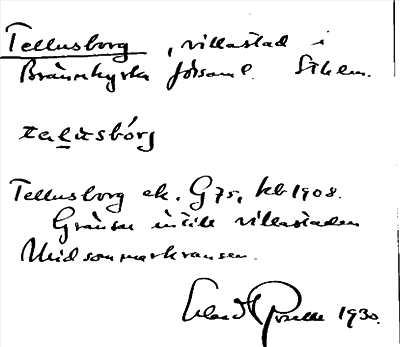 Tellusborg, villastad i
Brännkyrka församl. Sthlm.
Tellusborg ek. G75, kb 1908.
Gränsar intill villastaden
Midsommarkransen.
1930.